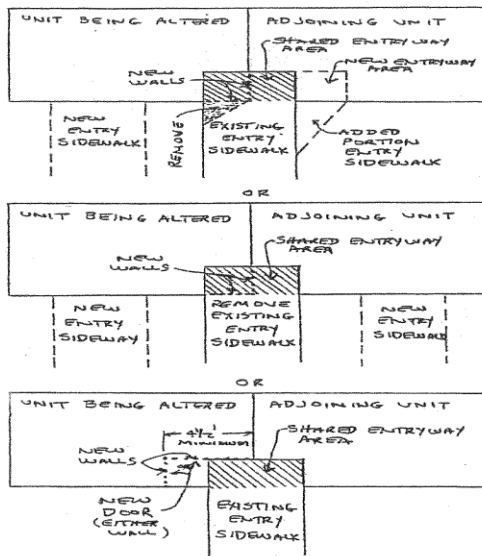 UNIT BEING ALTERED
ADJOINING UNIT
SHARED ENTRYWAY
AREA
NEW
WALLS
NEW ENTRYWAY
AREA
NEW
ENTRY
SIDEWALK
REMOVE
EXISTING
ENTRY
SIDEWALK
ADDED
PORTION
ENTRY
SIDEWALK
OR
UNIT BEING ALTERED
ADJOINING UNIT
SHARED ENTRYWAY
AREA
NEW
WALLS
NEW
ENTRY
SIDEWAY
REMOVE
EXISTING
ENTRY
SIDEWALK
NEW
ENTRY
SIDEWALK
OR
UNIT BEING ALTERED
ADJOINING UNIT
4½'
MINIMUM
SHARED ENTRYWAY
AREA
NEW
WALLS
NEW
DOOR
(EITHER
WALL)
EXISTING
ENTRY
SIDEWALK